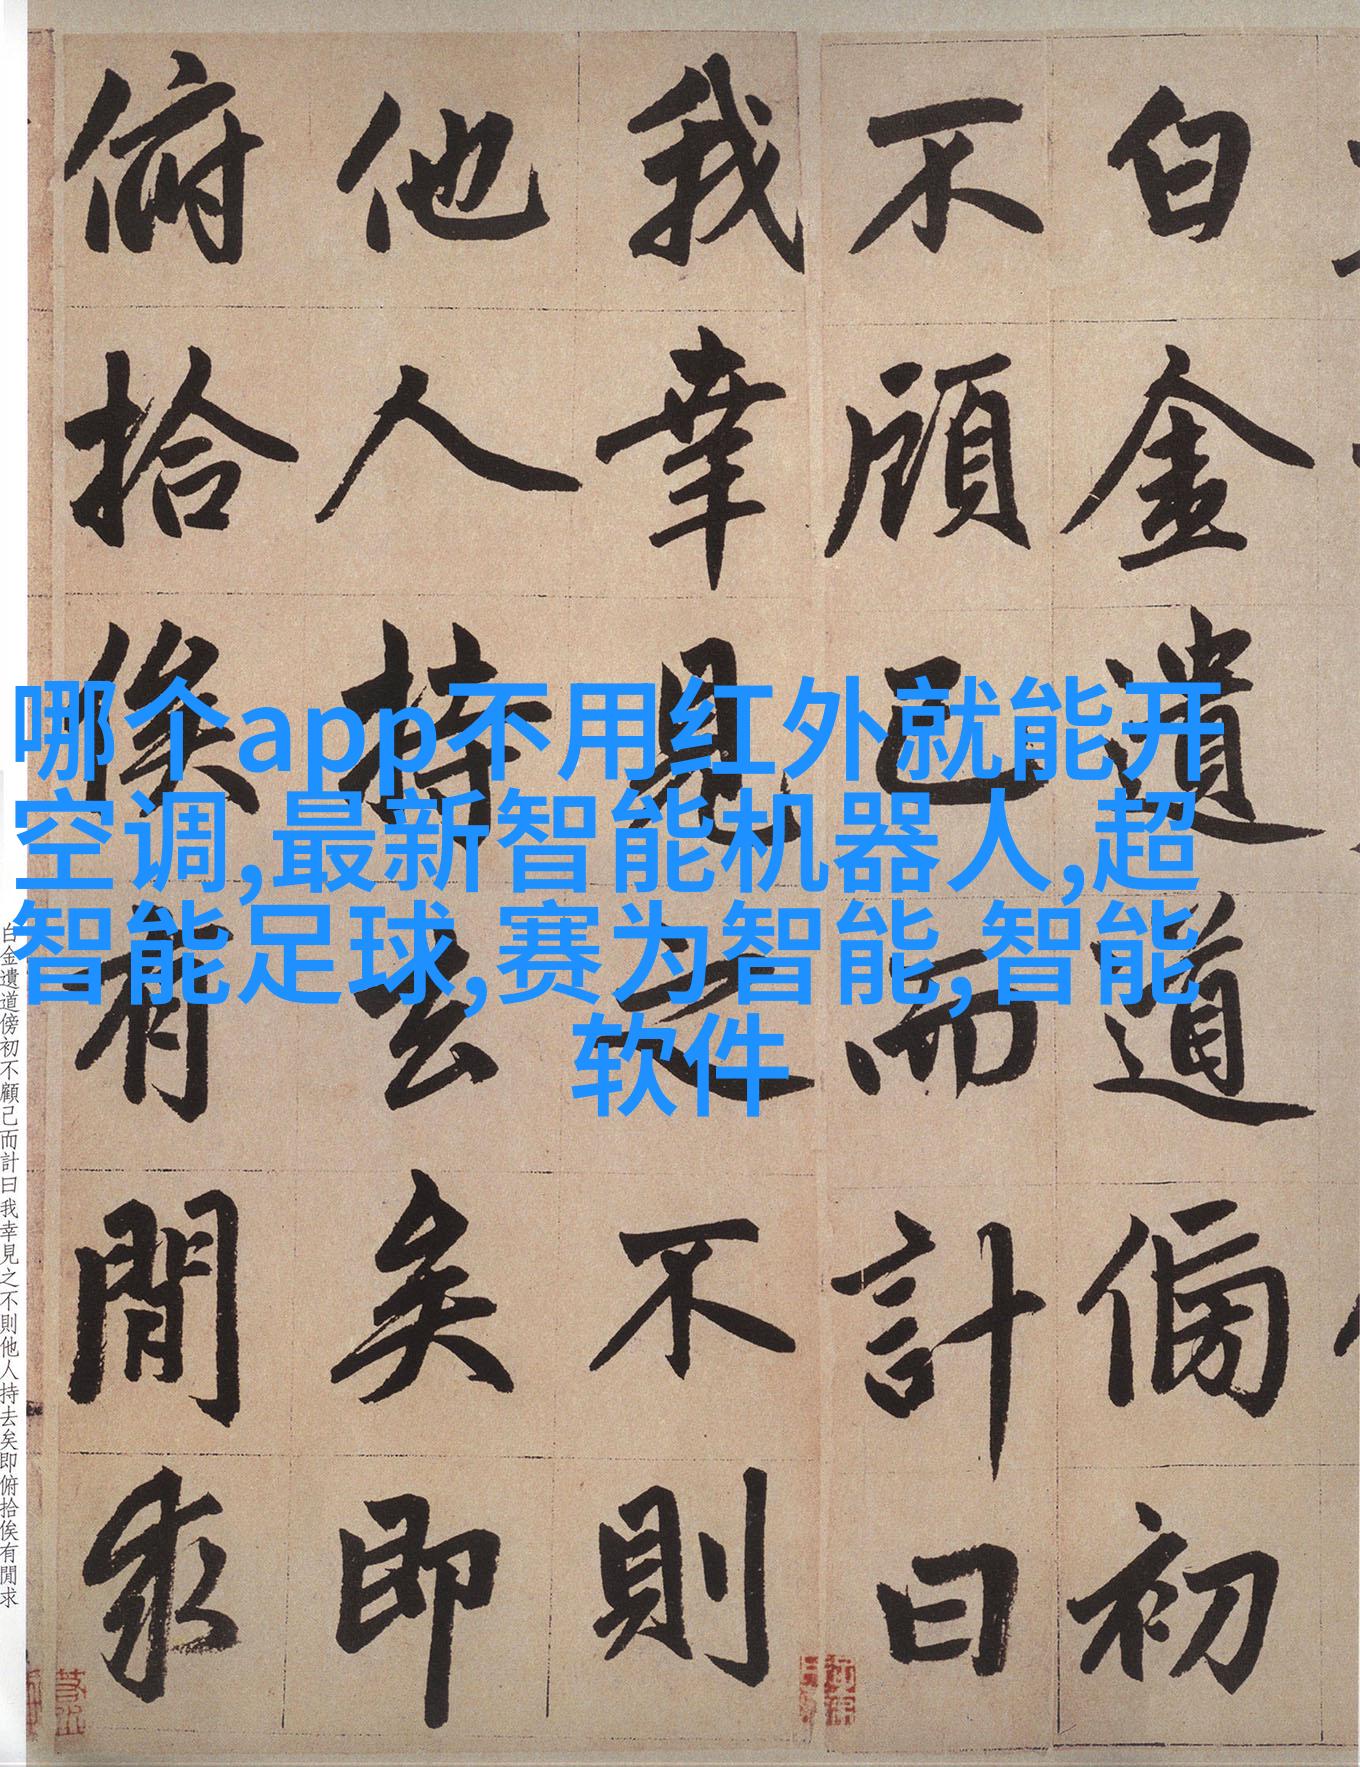 白金遺道傍初
不顧己而計曰
我幸見之不則
他人持去矣即
俯拾俟有閒求
哪个app不用红外就能开
空调,最新智能机器人,超
智能足球,赛为智能,智能
软件
白金遺道傍初不顧己而計曰我幸見之不則他人持去矣即俯拾俟有閒求